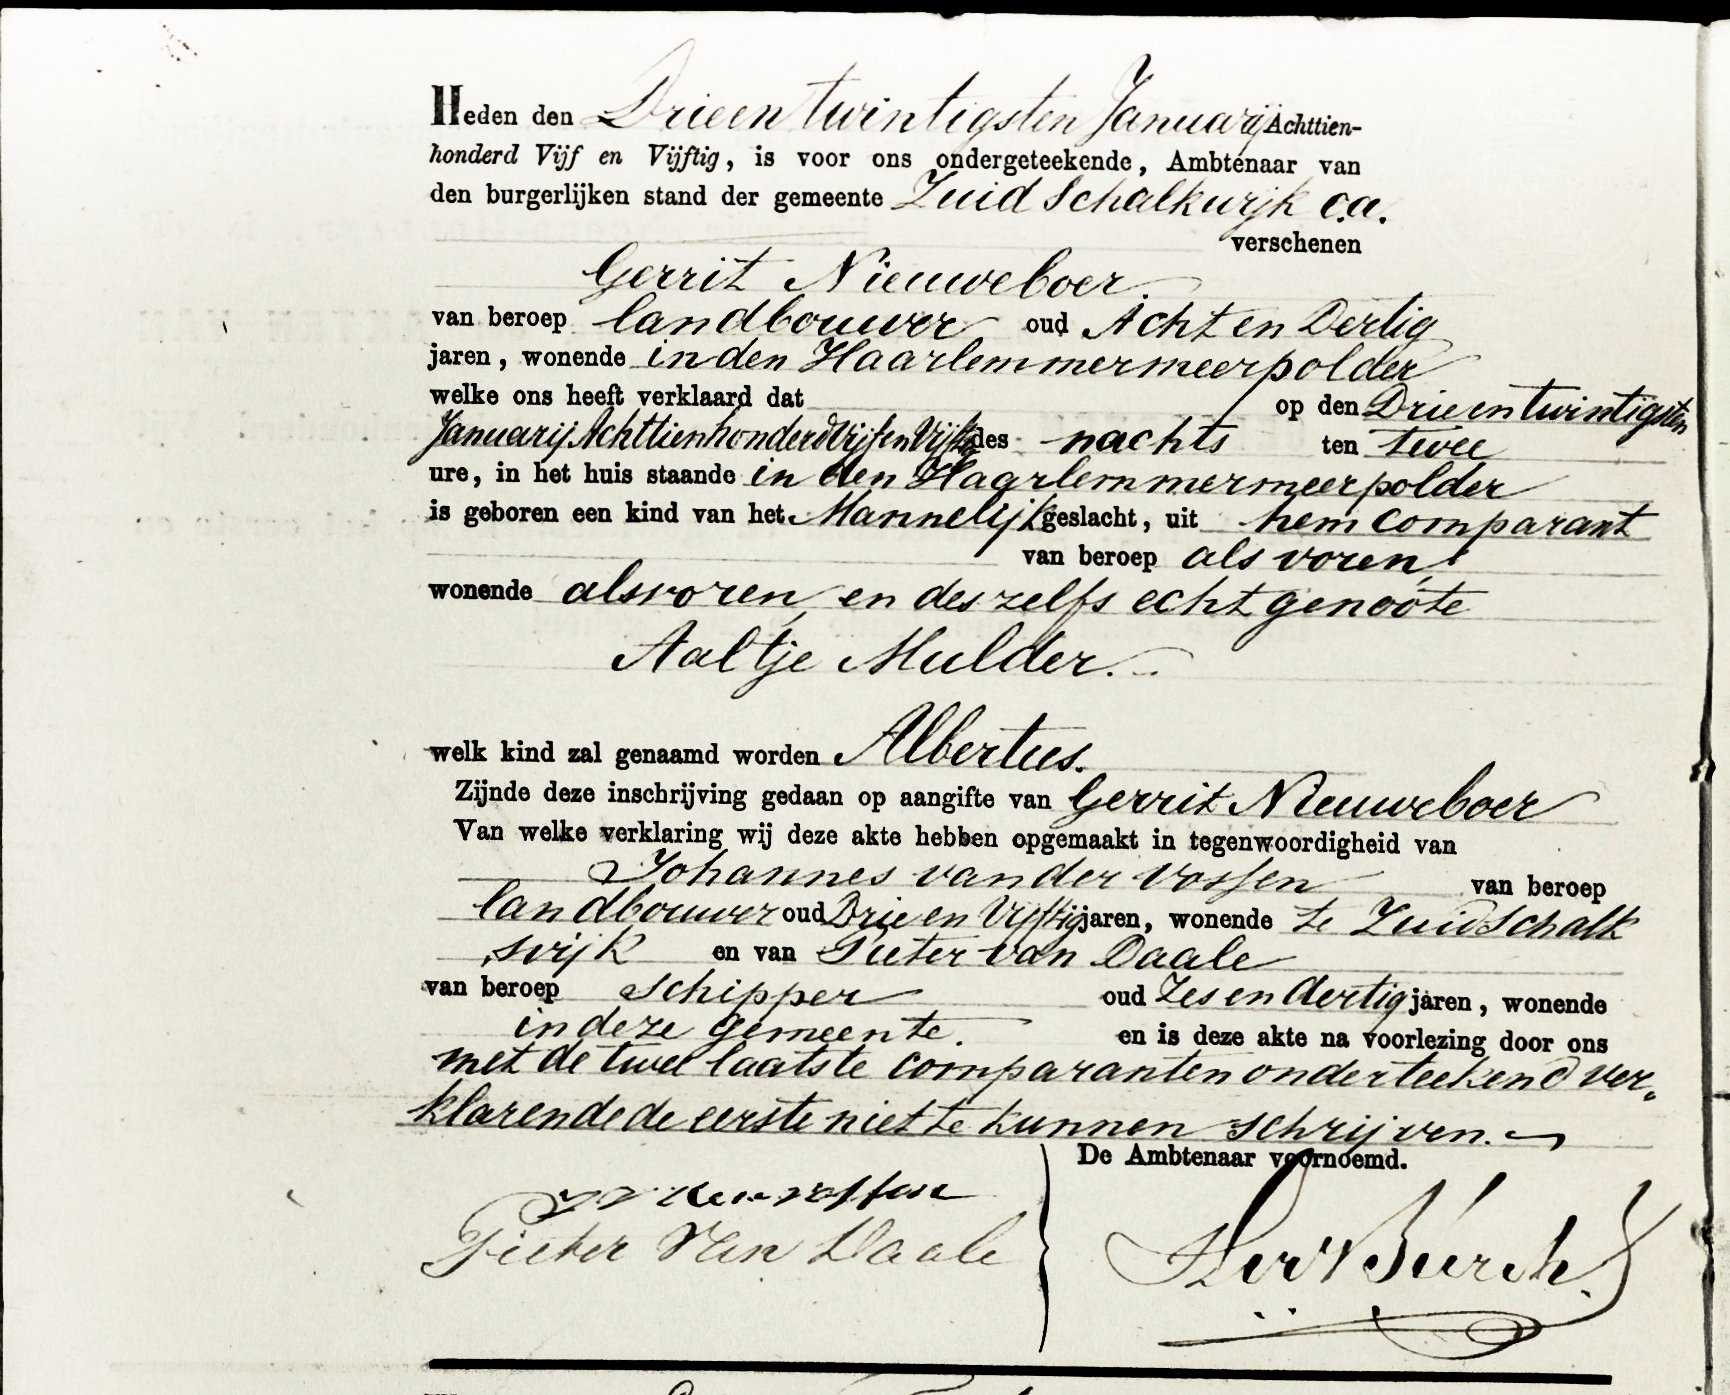 Heden den Drieentwintigsten Januarij Achttien-
honderd Vijf en Vijftig, is voor ons ondergeteekende, Ambtenaar van
den burgerlijken stand der gemeente Zuid Schalkwijk c.a.
verschenen
Gerrit Nieuweboer
van beroep landbouwer oud Acht en Dertig
jaren, wonende in den Haarlemmermeerpolder
welke ons heeft verklaard dat op den Drieentwintigsten
Januarij Achttienhonderdvijfen Vijftig des nachts ten twee
ure, in het huis staande in den Haarlemmermeerpolder
is geboren een kind van het Mannelijk geslacht, uit hem comparant
van beroep als voren,
wonende alsvoren, en deszelfs echtgenoote
Aaltje Mulder.
welk kind zal genaamd worden Albertus.
Zijnde deze inschrijving gedaan op aangifte van Gerrit Nieuweboer
Van welke verklaring wij deze akte hebben opgemaakt in tegenwoordigheid van
Johannes van der Vossen van beroep
landbouwer oud Drie en Vijftig jaren, wonende te Zuid Schalk
wijk en van Pieter van Daale
van beroep Schipper oud Zes en dertig jaren, wonende
in deze gemeente. en is deze akte na voorlezing door ons
met de twee laatste comparanten onderteekend ver„
klarende de eerste niet te kunnen schrijven.
De Ambtenaar voornoemd.
Pieter Van Daale